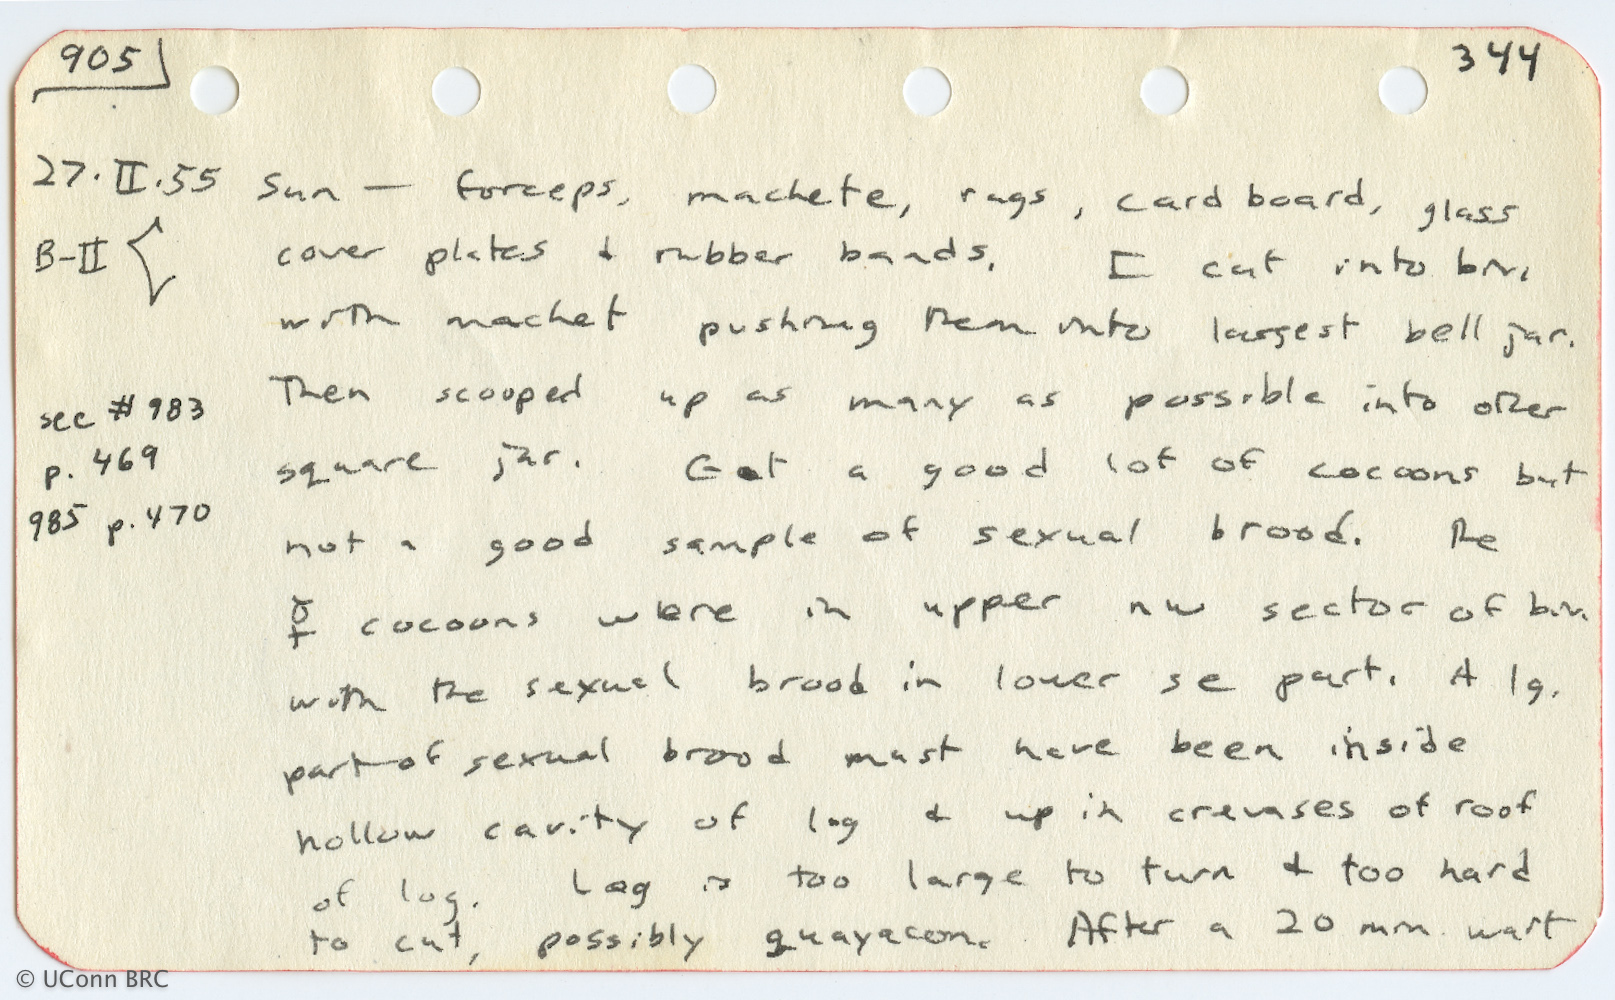 905
344
27.II.55 Sun — forceps, machete, rags, cardboard, glass
B-II cover plates & rubber bands. I cut into biv.
with machet pushing them into largest bell jar.
Then scooped up as many as possible into other
see # 983
p. 469
985 p. 470
square jar. Got a good lot of cocoons but
not a good sample of sexual brood. The
☿ cocoons were in upper nw sector of biv.
with the sexual brood in lower se part. A lg.
part of sexual brood must have been inside
hollow cavity of log & up in crevases of roof
of log. Log is too large to turn & too hard
to cut, possibly guayacon. After a 20 min. wait
© UConn BRC